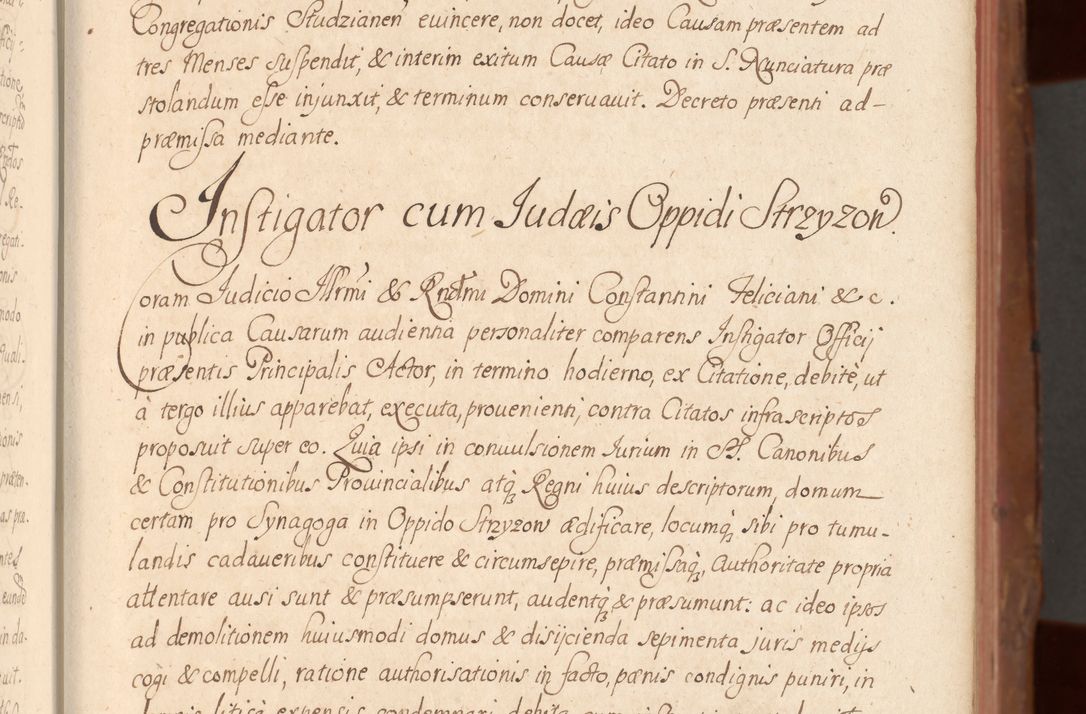 Congregationis Studzianen evincere, non docet, ideo Causam præsentem ad
tres Menses suspendit, & interim exitum Causæ Citato in S. Nunciatura præ
stolandum esse injunxit, & terminum conseruauit. Decreto præsenti ad-
præmissa mediante.
Instigator cum Iudæis Oppidi Strzyzow.
Coram Iudicio Illrmi & Rndmi Domini Constantini Feliciani & c.
in publica Causarum audientia personaliter comparens Instigator Officij
præsentis Principalis Actor, in termino hodierno, ex Citatione, debitè, ut
à tergo illius apparebat, executa, prouenienti, contra Citatos infrascriptos
proposuit super eo. Quia ipsi in conuulsionem Iurium in SS. Canonibus
& Constitutionibus Prouincialibus atq3 Regni huius descriptorum, domum
certam pro Synagoga in Oppido Strzyzow ædificare, locumq3 sibi pro tumu-
landis cadaueribus constituere & circumsepire, præmissaq3, Authoritate propria
attentare ausi sunt & præsumpserunt, audentq3 & præsumunt: ac ideo ipsos
ad demolitionem huiusmodi domus & disijcienda sepimenta juris medijs
cogi & compelli, ratione authorisationis in facto, pænis condignis puniri, in
litis expensis condemnari debita